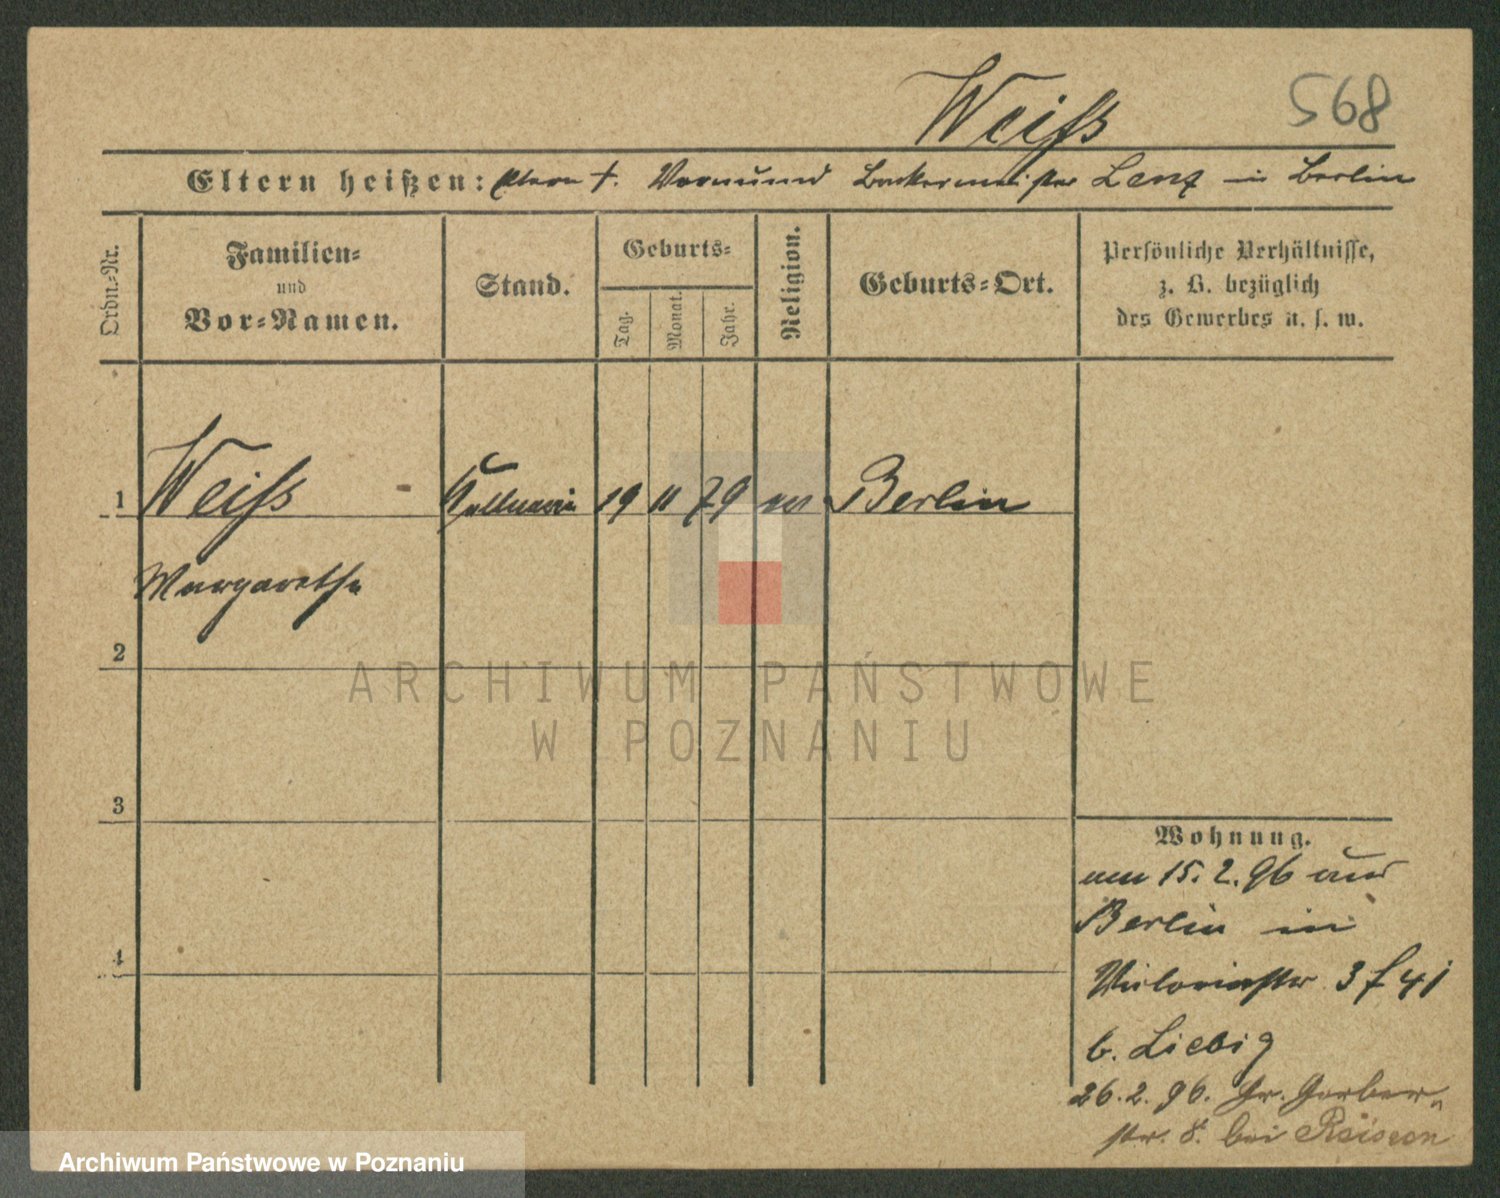 Weiß
568
Eltern heißen: Eltern †. Vormund Bäckermeister Lenz in Berlin
Ordn.-Nr.
Familien-
und
Vor-Namen.
Stand.
Geburts-
Tag.
Monat.
Jahr.
Religion.
Geburts-Ort.
Persönliche Verhältnisse,
z. B. bezüglich
des Gewerbes u. s. w.
1 Weiß Kellnerin 19 11 79 Berlin
Margarethe
2
3
4
ARCHIWUM PAŃSTWOWE
W POZNANIU
Wohnung.
am 15. 2. 96 aus
Berlin in
Victoriastr 3
b. Liebig
26. 2. 96. Gr. Gerber-
str. 8. bei
Archiwum Państwowe w Poznaniu